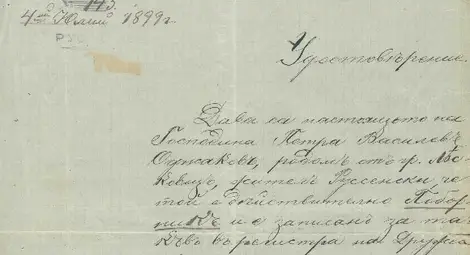 143.
4ий Юлий 1899г.
РУ
Удостовѣрение.
Дава са настоящето на
Господина Петра Василевъ
Оджаковъ, родомъ отъ гр. Лѣс-
ковецъ, жителъ Руссенски че
той е дѣйствително Побор-
никъ и е записанъ за та-
къвъ въ регистра на Дружес